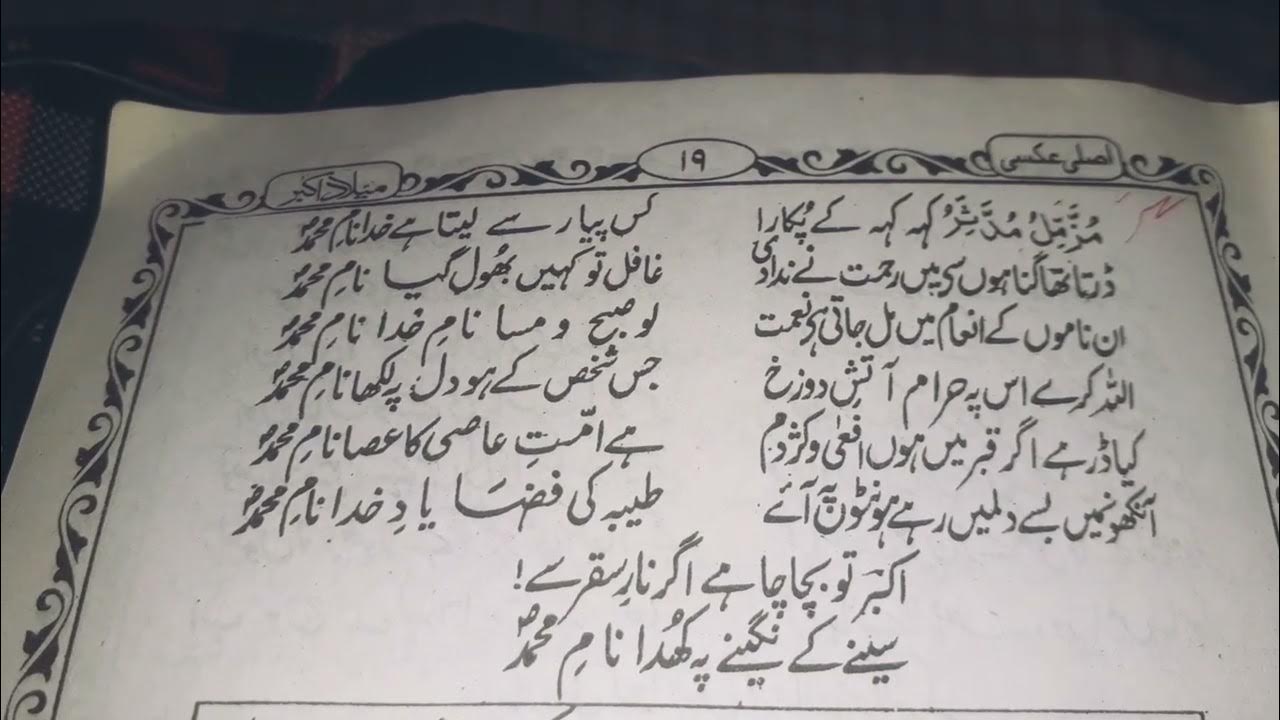 اصلی عکسی ۱۹ میلاد اکبر
مُزَّمِّلُ مُدَّثِّرُ کہہ کہہ کے پُکارا کس پیار سے لیتا ہے خدا نامِ محمدؐ
ڈرتا تھا گناہوں سے میں رحمت نے ندا دی غافل تو کہیں بھُول گیا نامِ محمدؐ
ان ناموں کے انعام میں مل جاتی ہے نعمت لو صبح و مسا نامِ خدا نامِ محمدؐ
اللہ کرے اس پہ حرام آتشِ دوزخ جس شخص کے ہو دل پہ لکھا نامِ محمدؐ
کیا ڈر ہے اگر قبر میں ہوں افعٰی و کژدم ہے امّتِ عاصی کا عصا نامِ محمدؐ
آنکھونمیں بسے دلمیں رہے ہونٹوں پہ آئے طیبہ کی فضا یادِ خدا نامِ محمدؐ
اکبرؔ تو بچا چاہے اگر نارِ سقر سے!
سینے کے نگینے پہ کھُدا نامِ محمدؐ